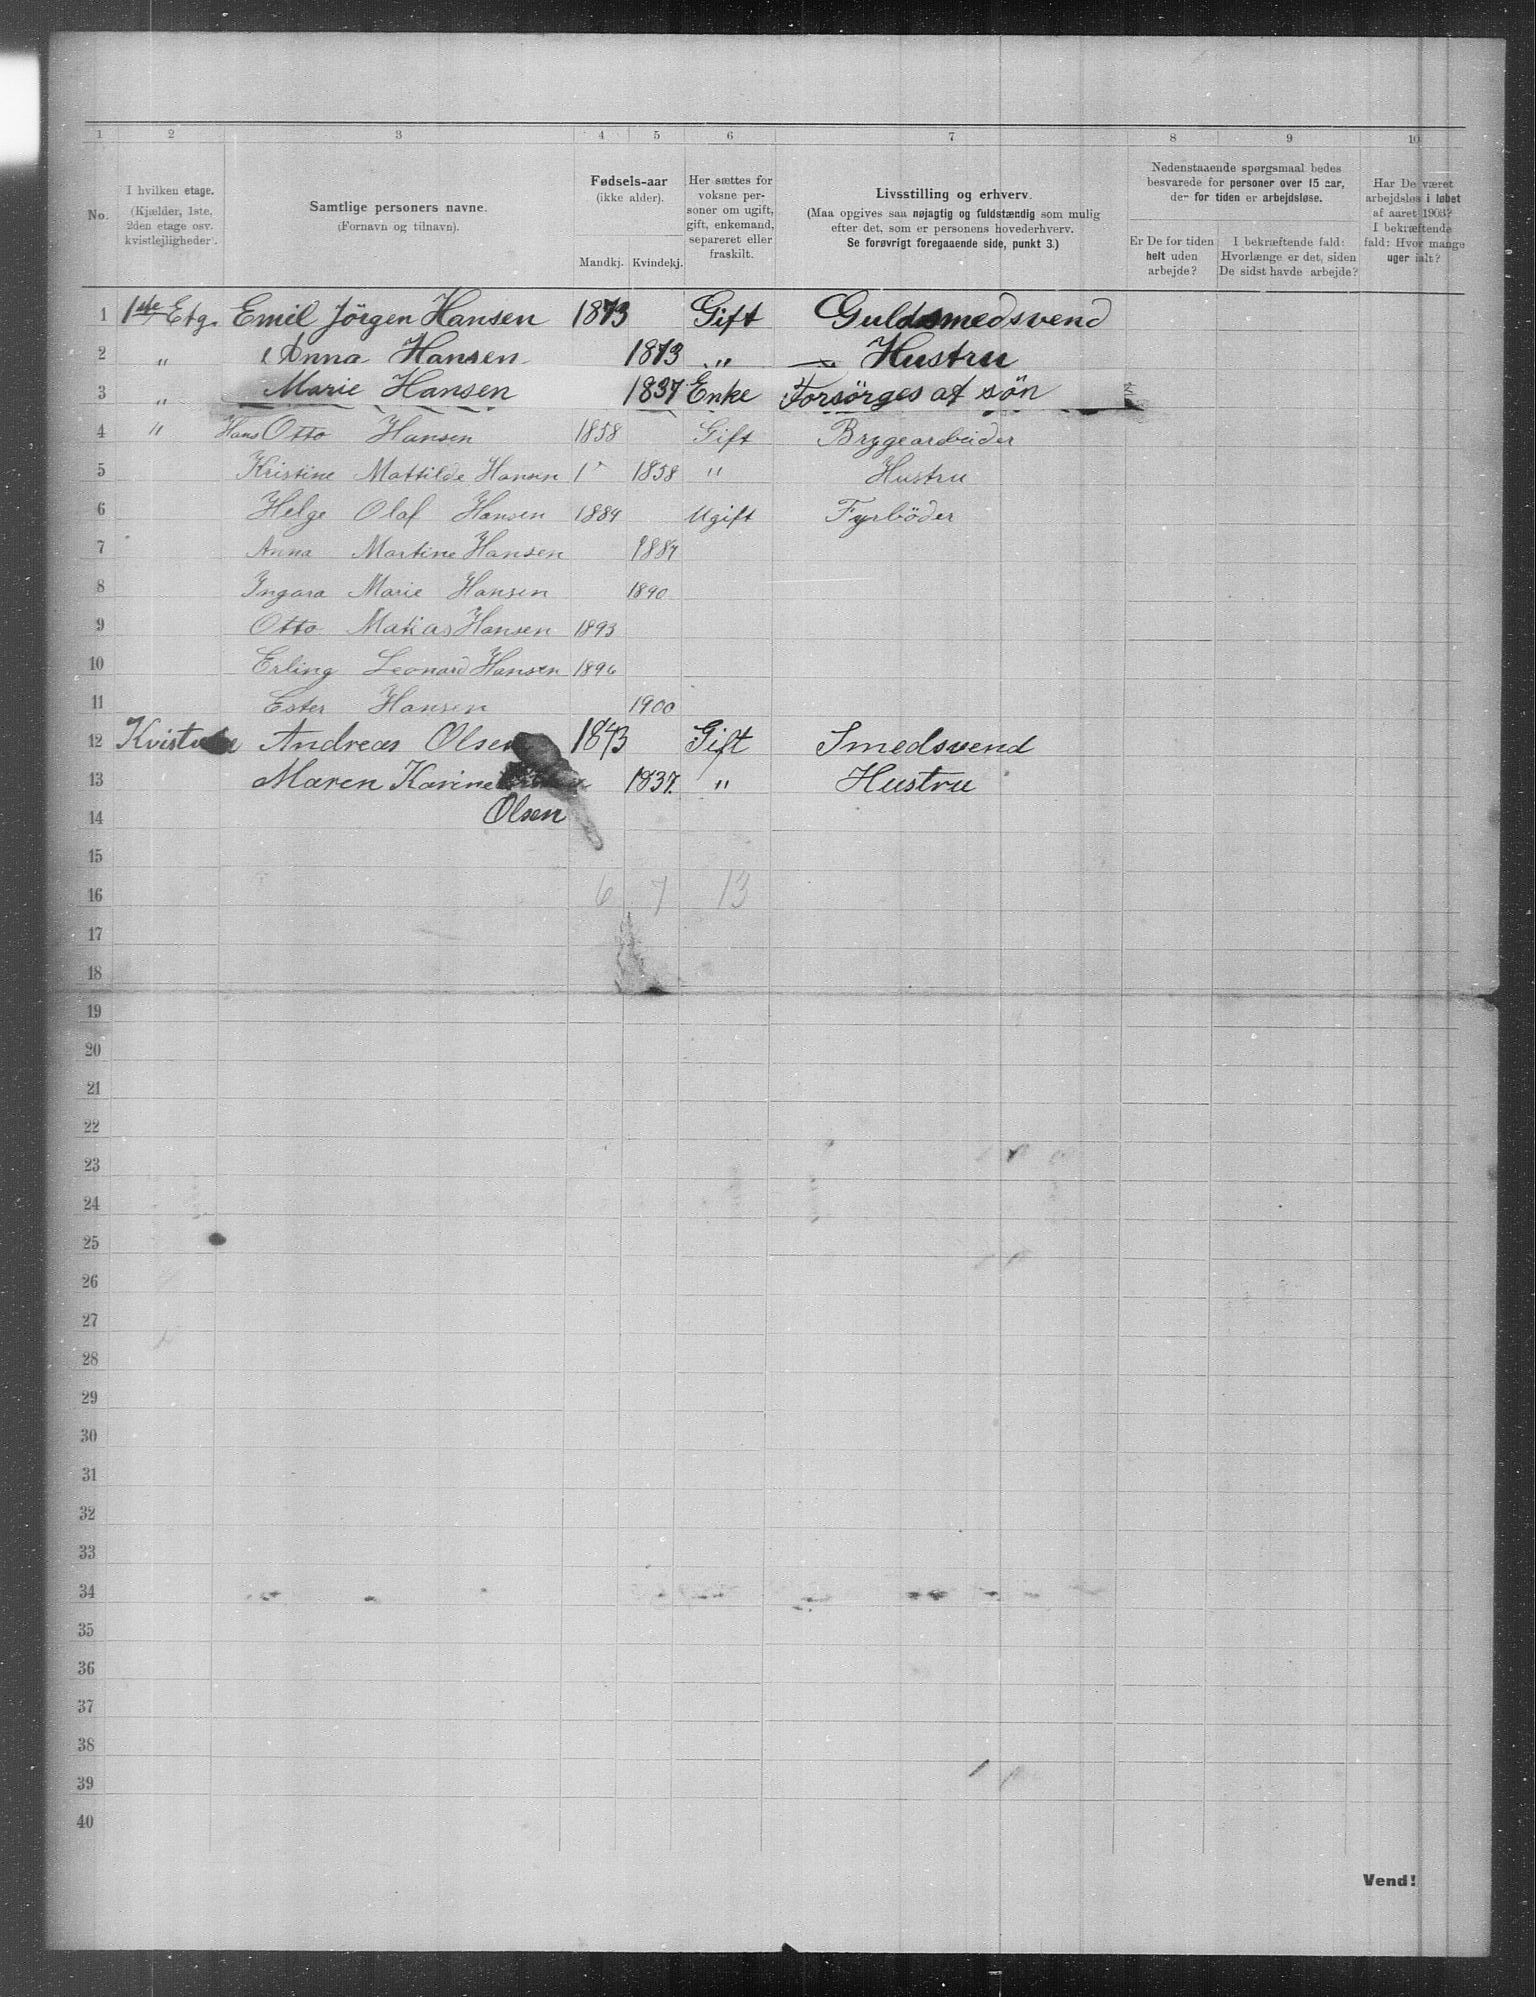 1 2 3 4 5 6 7 8 9 10
No.
I hvilken etage.
(Kjælder, 1ste,
2den etage osv.
kvistlejligheder).
Samtlige personers navne.
(Fornavn og tilnavn).
Fødsels-aar
(ikke alder).
Mandkj. Kvindekj.
Her sættes for
voksne per-
soner om ugift,
gift, enkemand,
separeret eller
fraskilt.
Livsstilling og erhverv.
(Maa opgives saa nøjagtig og fuldstændig som mulig
efter det, som er personens hovederhverv.
Se forøvrigt foregaaende side, punkt 3.)
Nedenstaaende spørgsmaal bedes
besvarede for personer over 15 aar,
der for tiden er arbejdsløse.
Er De for tiden
helt uden
arbejde?
I bekræftende fald:
Hvorlænge er det, siden
De sidst havde arbejde?
Har De været
arbejdsløs i løbet
af aaret 1903?
I bekræftende
fald: Hvor mange
uger ialt?
1 1ste Etg. Emil Jörgen Hansen 1873 Gift Guldsmedsvend
2 " Anna Hansen 1873 " Hustru
3 " Marie Hansen 1837 Enke Forsörges af sön
4 " Hans Otto Hansen 1858 Gift Brygearbeider
5 Kristine Mattilde Hansen 1 1858 " Hustru
6 Helge Olaf Hansen 1884 Ugift Fyrböder
7 Anna Martine Hansen 1887
8 Ingara Marie Hansen 1890
9 Otto Matias Hansen 1893
10 Erling Leonard Hansen 1896
11 Ester Hansen 1900
12 Andreas Olsen 1843 Gift Smedsvend
13 Maren Karine 1837. " Hustru
14 Olsen
15
16 6 7 13
17
18
19
20
21
22
23
24
25
26
27
28
29
30
31
32
33
34
35
36
37
38
39
40
Vend!